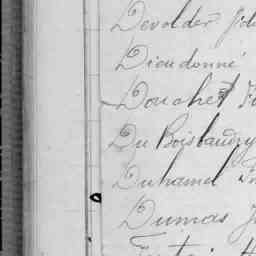 Devolder Jo
Dieudonné
Douchet F
Du Boisbaudry
Duhamel Fr
Dumas J